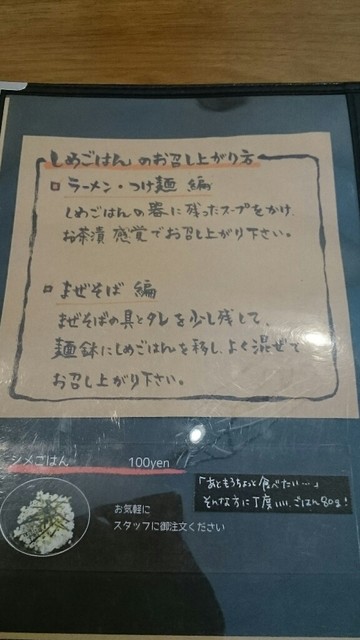 しめごはん のお召し上がり方
ロ ラーメン・つけ麺 編
しめごはんの器に残ったスープをかけ
お茶漬感覚でお召し上がり下さい。
ロ まぜそば 編
まぜそばの具とタレを少し残して、
麺鉢にしめごはんを移し、よく混ぜて
お召し上がり下さい。
シメごはん 100yen
「あともうちょっと食べたい…」
そんな方に丁度いい、ごはん80g!
お気軽に
スタッフに御注文ください